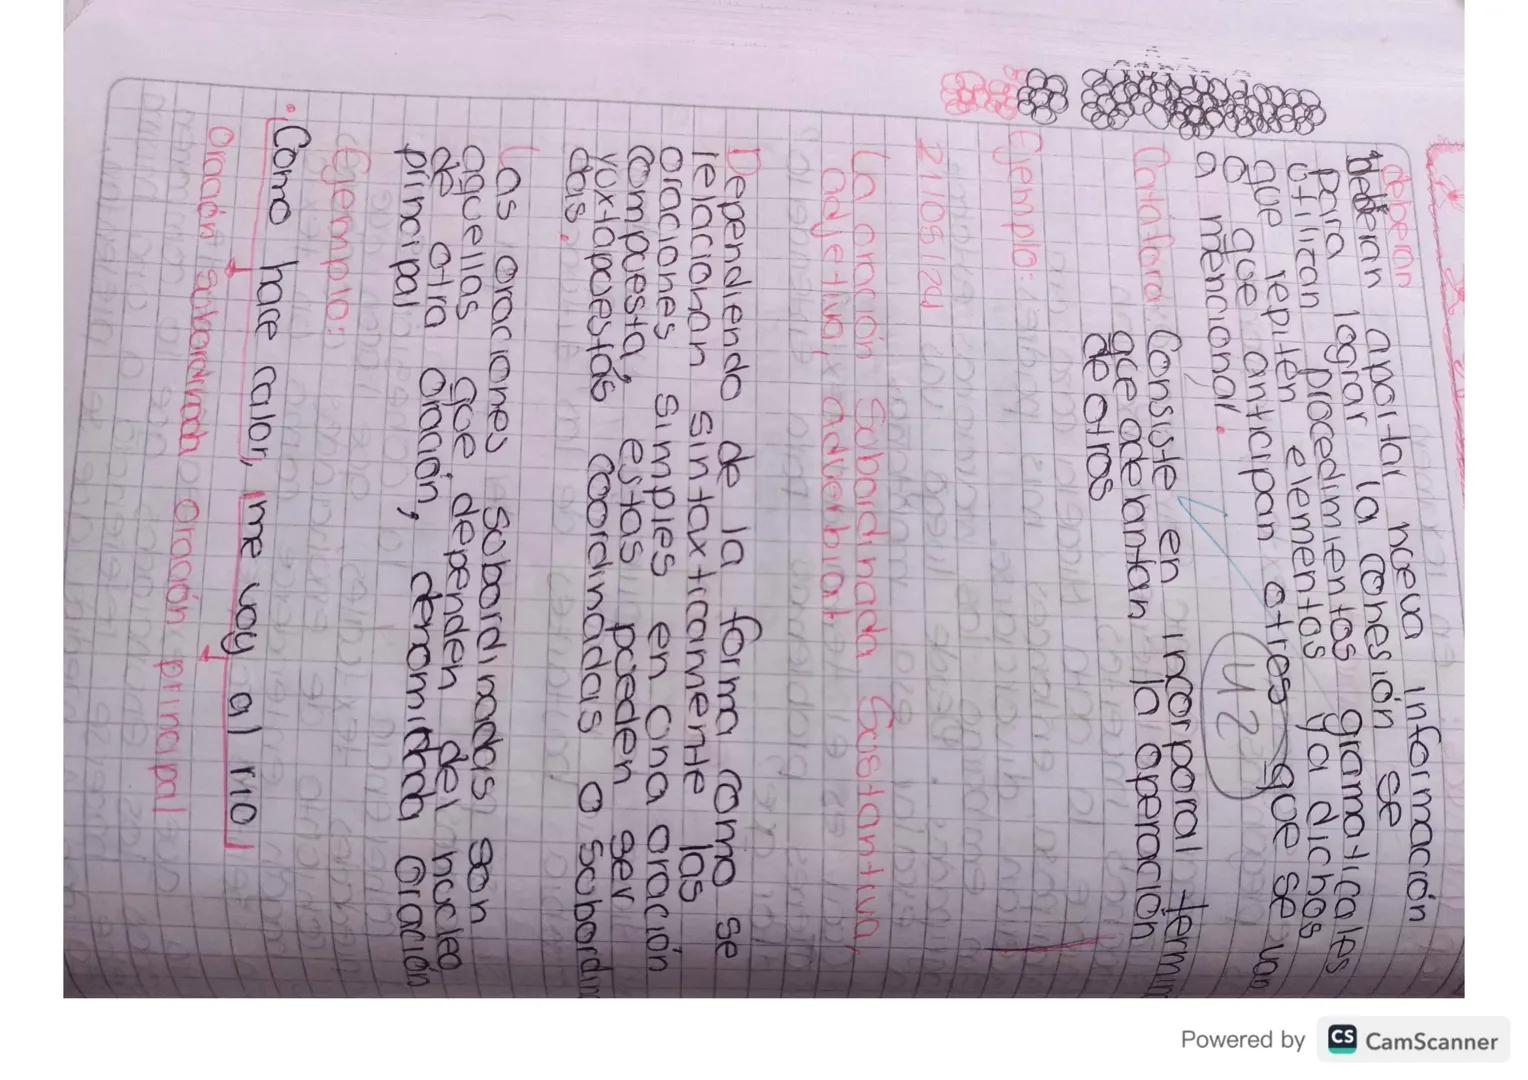 deberan
deberan aportar nueva información
para lograr la cohesión se
utilizan procedimientos gramaticales
que repiten elementos ya dichos
o que anticipan otres que se van
a mencional.
42
Catáfora: Consiste en incorporal
que adelantan la operación
de otros
Ejemplo:
21/05/24
La oración Sabordinada Sustantiva,
adjetiva, Adverbial
Dependiendo de la forma como se
relacionan sintaxticamente las
oraciones simples en una oración
compuesta, estas pueden ser
yuxtapuestas coordinadas o subordin
das.
Las oraciones Subordinadas son
aquellas que dependen del nucleo
de otra oración, denominada oración
principal
Ejemplo:
• Como hace calor, me voy al rio
Oración Subordinada Oración principal
Powered by CS CamScanner